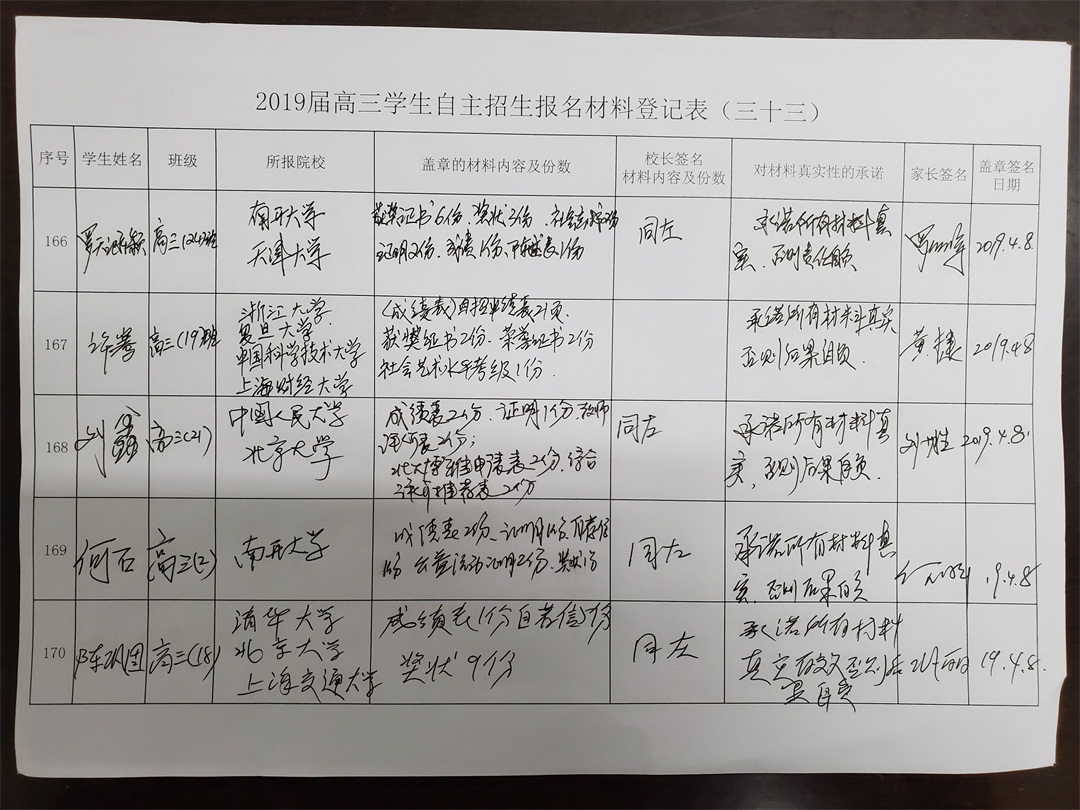 2019届高三学生自主招生报名材料登记表（三十三）
序号 学生姓名 班级 所报院校 盖章的材料内容及份数 校长签名 材料内容及份数 对材料真实性的承诺 家长签名 盖章签名日期
166 高三(24)班
南开大学
天津大学
获奖证书6份、奖状3份、
证明2份、
同左
承诺所有材料真
实，否则责任自负
2019.4.8
167 许誉 高三(19)班
浙江大学
复旦大学
中国科学技术大学
上海财经大学
获奖证书2份、荣誉证书2份
社会艺术水平考级1份
承诺所有材料真实
否则后果自负.
黄捷 2019.4.8
168 刘鑫 高三(21)
中国人民大学
北京大学
成绩表2份、证明1份、教师
评价表2份；
北大博雅申请表2份、综合
评价推荐表2份
同左
承诺所有材料真
实，否则后果自负.
2019.4.8
169 何石 高三(2)
南开大学
成绩表2份、证明1份、自荐信
1份 公益活动证明2份、奖状1份
同左
承诺所有材料真
实，否则后果自负
19.4.8
170 高三(18)
清华大学
北京大学
上海交通大学
成绩表1份自荐信1份
奖状9份
同左
承诺所有材料
真实有效否则后
果自负
19.4.8